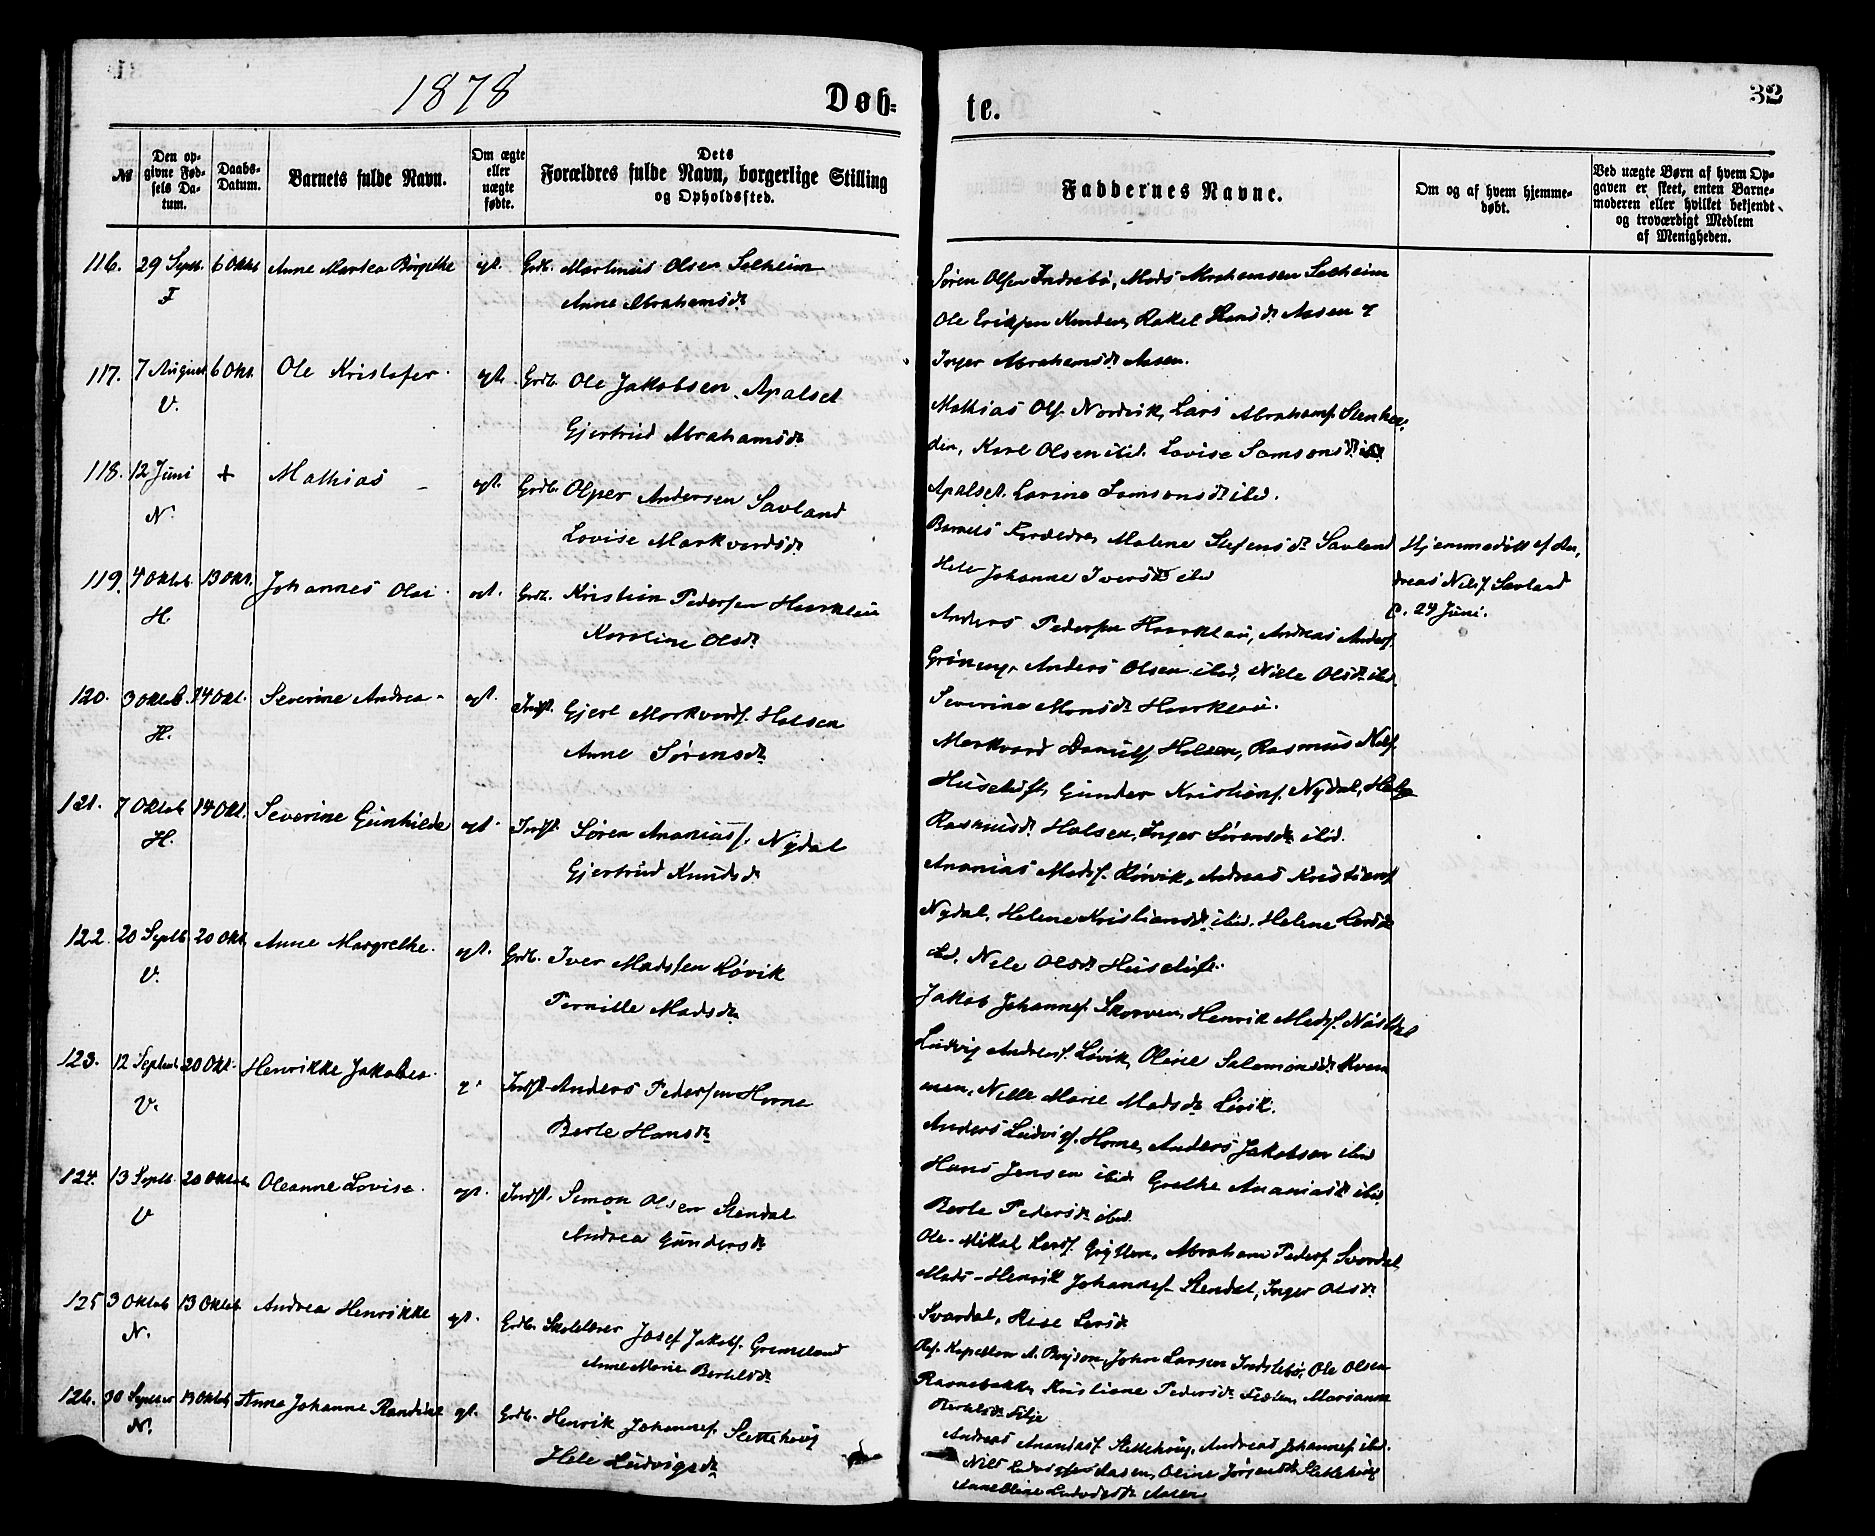 1878
Døb-
te.
32
№
Den op-
givne Fød-
sels Da-
tum.
Daabs-
Datum.
Barnets fulde Navn.
Om ægte
eller
uægte
fødte.
Dets
Forældres fulde Navn, borgerlige Stilling
og Opholdssted.
Faddernes Navne.
Om og af hvem hjemme-
døbt.
Ved uægte Børn af hvem Op-
gaven er skeet, enten Barne-
moderen eller hvilket bekjendt
og troværdigt Medlem
af Menigheden.
116. 29 Sept. 6 Oktb Anne Martea Birgithe egt. Grdb. Martinus Olsen Solheim
F Anne Abrahamsdr
Søren Olsen Indrebø, Mads Abrahamsen Solheim
Ole Eriksen Kunden, Rakel Hansdr Aasen &
Inger Abrahamsdr Aasen.
117. 7 August 6 Okt. Ole Kristofer egt. Grdb. Ole Jakobsen Apalset
V. Gjertrud Abrahamsdr
Mathias Ols. Nordvik, Lars Abrahams.
Karl Olsen ibid. Lovise Samsonsdr
Apalset. Larine Samsonsdr ibid.
118. 12 Juni + Mathias egt. Grdb. Olper Andersen Savland
N. Lovise Markvardsdr
Barnets Forældre, Malene Stefensdr Savland
Hele Johanne Iversdr ibid
Hjemmedøbt af An-
dreas Nils. Savland
d. 24 Juni.
119. 4 Oktob. 13 Okt. Johannes Olai egt. Grdb. Kristian Pedersen Haarklau
H. Karoline Olsdr
Anders Pedersen Haarklau, Andreas Anders.
Gröneng, Anders Olsen ibid, Nille Olsdr ibid.
Severine Monsdr Haarklau.
120. 3 Oktob. 14 Okt. Severine Andrea egt. Indst. Gjert Markvards. Holsen
H. Anne Sørensdr
Markvard Daniels. Holsen, Rasmus Nils.
Husetuft, Gunder Kristians. Nydal, Helge
Rasmusdr Holsen, Inger Sørensdr ibid.
121. 7 Oktob 14 Okt. Severine Gunhilde egt. Indst. Søren Ananias. Nydal
H. Gjertrud Knudsdr
Ananias Mads. Rörvik, Andreas Kristians.
Nydal, Helene Kristiansdr ibid. Helene Larsdr
ibd. Nele Olsdr Husetuft.
122. 20 Septb 20 Okt. Anne Margrethe. egt. Grdb. Iver Madssen Lövik
V. Pernille Madsdr
Jakob Johannes. Skorven, Henrik Mads.
Ludvig Anders. Lövik, Oline Salomonsdr Kvam-
men, Nille Marie Madsdr Lövik.
123. 12 Septemb 20 Okt. Henrikke Jakobea. Indst. Anders Pedersen Horne
V. Berte Hansdr
Anders Ludvigs. Horne, Anders Jakobsen ibid
Hans Jensen ibid Grethe Ananiasdr ibid.
Berte Pedersdr ibid.
124. 13 Septb. 20 Oktob. Oleanne Lovise. egt. Indst. Simon Olsen Stendal
V Andrea Gundersdr
Ole-Mikal Lars. Grytten, Abraham Peders. Svardal
Mads-Henrik Johannes. Stendal, Inger Olsdr
Svardal, Elise Larsdr
125 3 Oktob 13 Oktob Andrea Henrikke egt. Grdb. Skolelærer Josef Jakobs. Grimeland
N. Anne Marie Bertelsdr
Res. Kapellan A. Boyson, John Larsen Indrebø, Ole Olsen
Ravnebakke, Kristiane Pedersdr Marianne
126. 30 Septber 13 Oktob Anne Johanne Randine egt. Grdb. Henrik Johannes. Slettehaug
N. Hele Ludvigsdr
Andreas Ananias. Slettehaug, Andreas Johannes. ibid.
Nils Ludvigsen Aasen, Oline Jørgensdr Slettehaug
Anne Oline Ludvigsdr Aasen